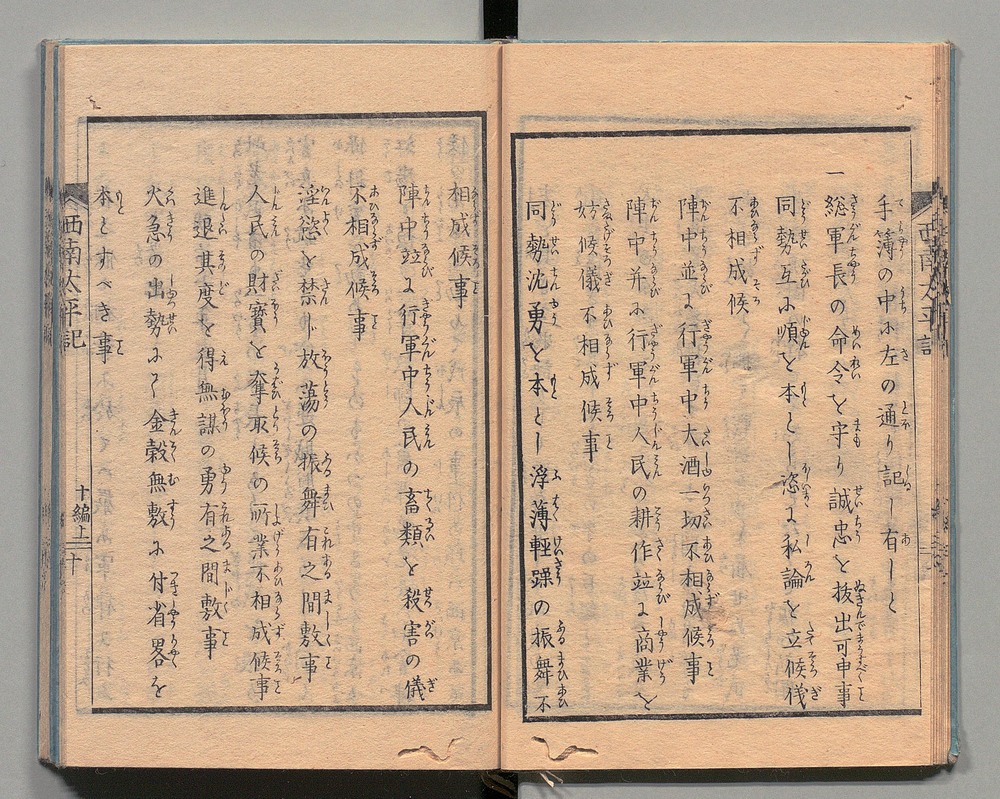 手簿の中に左の通り記し有しと
一 総軍長の命令を守り誠忠を抜出可申事
同勢互ふ順を本とし恣に私論を立候儀
不相成候
陣中並に行軍中大酒一切不相成候事
陣中并ふ行軍中人民の耕作並に商業を
妨候儀不相成候事
同勢沈勇を本とし浮薄輕躁の振舞不
相成候事
陣中並に行軍中人民の畜類を殺害の儀
不相成候事
淫慾を禁じ放蕩の振舞有之間敷事
人民の財寳を奪取候の所業不相成候事
進退其度を得無謀の勇有之間敷事
火急の出勢ふて金穀無數ふ付省畧を
本とすべき事
西南太平記
十一編上
十